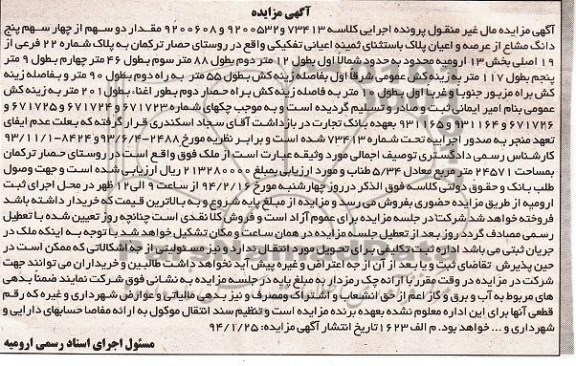 آگهی مزایده
آگهی مزایده مال غیر منقول پرونده اجرایی کلاسه ۷۳۴۱۳ و ۹۲۰۰۵۳۲ و ۹۲۰۰۶۰۸ مقدار دو سهم از چهار سهم پنج
دانگ مشاع از عرصه و اعیان پلاک باستثنای ثمینه اعیانی تفکیکی واقع در روستای حصار ترکمان به پلاک شماره ۲۲ فرعی از
۱۹ اصلی بخش ۱۳ ارومیه محدود به حدود شمالا اول بطول ۱۲ متر دوم بطول ۸۸ متر سوم بطول ۴۶ متر چهارم بطول ۹ متر
پنجم بطول ۱۱۷ متر به زینه کش عمومی شرقا اول بفاصله زینه کش بطول ۵۵ متر به راه دوم بطول ۹۰ متر و بفاصله زینه
کش براه مزبور جنوبا و غربا اول بطول ۱۰ متر به فاصله زینه کش براه حصار دوم بطور اغنا، بطول ۲۰۱ متر به زینه کش
عمومی بنام امیر ایمانی ثبت و صادر و تسلیم گردیده است و به موجب چکهای شماره ۶۷۱۷۲۳ و ۶۷۱۷۲۴ و ۶۷۱۷۲۵ و
۶۷۱۷۲۶ و ۹۳۱۱۶۴ و ۹۳۱۱۶۵ بعهده بانک تجارت در بازداشت آقای سجاد اسکندری قرار گرفته که بعلت عدم ایفای
تعهد منجر به صدور اجراییه تحت شماره ۷۳۴۱۳ شده است و برابر نظریه مورخ ۲۴۸۸-۹۳/۶/۴ و ۸۴۲۴-۹۳/۱۱/۱
کارشناس رسمی دادگستری توصیف اجمالی مورد وثیقه عبارت است از ملک فوق واقع است در روستای حصار ترکمان
بمساحت ۲۴۵۷۱ متر مربع معادل ۵/۳۴ طناب و مورد ارزیابی بمبلغ ۲۱۳۲۸۰۰۰۰۰ ریال ارزیابی شده است و جهت وصول
طلب بانک و حقوق دولتی کلاسه فوق الذکر در روز چهارشنبه مورخ ۹۴/۲/۱۶ از ساعت ۹ الی ۱۲ ظهر در محل اجرای ثبت
ارومیه از طریق مزایده حضوری بفروش می رسد و مزایده از مبلغ پایه شروع و به بالاترین قیمت که خریدار داشته باشد
فروخته خواهد شد شرکت در جلسه مزایده برای عموم آزاد است و فروش کلا نقدی است چنانچه روز تعیین شده با تعطیل
رسمی مصادف گردد روز بعد از تعطیل جلسه مزایده در همان ساعت و مکان تشکیل خواهد شد با توجه به اینکه ملک در
جریان ثبتی می باشد اداره ثبت تکلیفی برای تحویل مورد انتقال ندارد و نیز مسئولیتی از جهت اشکالاتی که ممکن است در
حین پذیرش تقاضای ثبت و یا بعد از آن از جه اعتراض و غیره پیش آید نخواهد داشت طالبین و خریداران می توانند جهت
شرکت در مزایده در وقت مقرر با ارائه چک رمزدار به مبلغ پایه در جلسه مزایده به نشانی فوق شرکت نمایند ضمنا بدهی
های مربوط به آب و برق و گاز اعم از حق انشعاب و اشتراک و مصرف و نیز بدهی مالیاتی و عوارض شهرداری و غیره که رقم
قطعی آنها برای این اداره معلوم نشده بعهده برنده مزایده است و تنظیم سند انتقال موکول به ارائه مفاصا حسابهای دارایی و
شهرداری و ... خواهد بود. م الف ۱۶۲۳ تاریخ انتشار آگهی مزایده: ۹۴/۱/۲۵
مسئول اجرای اسناد رسمی ارومیه